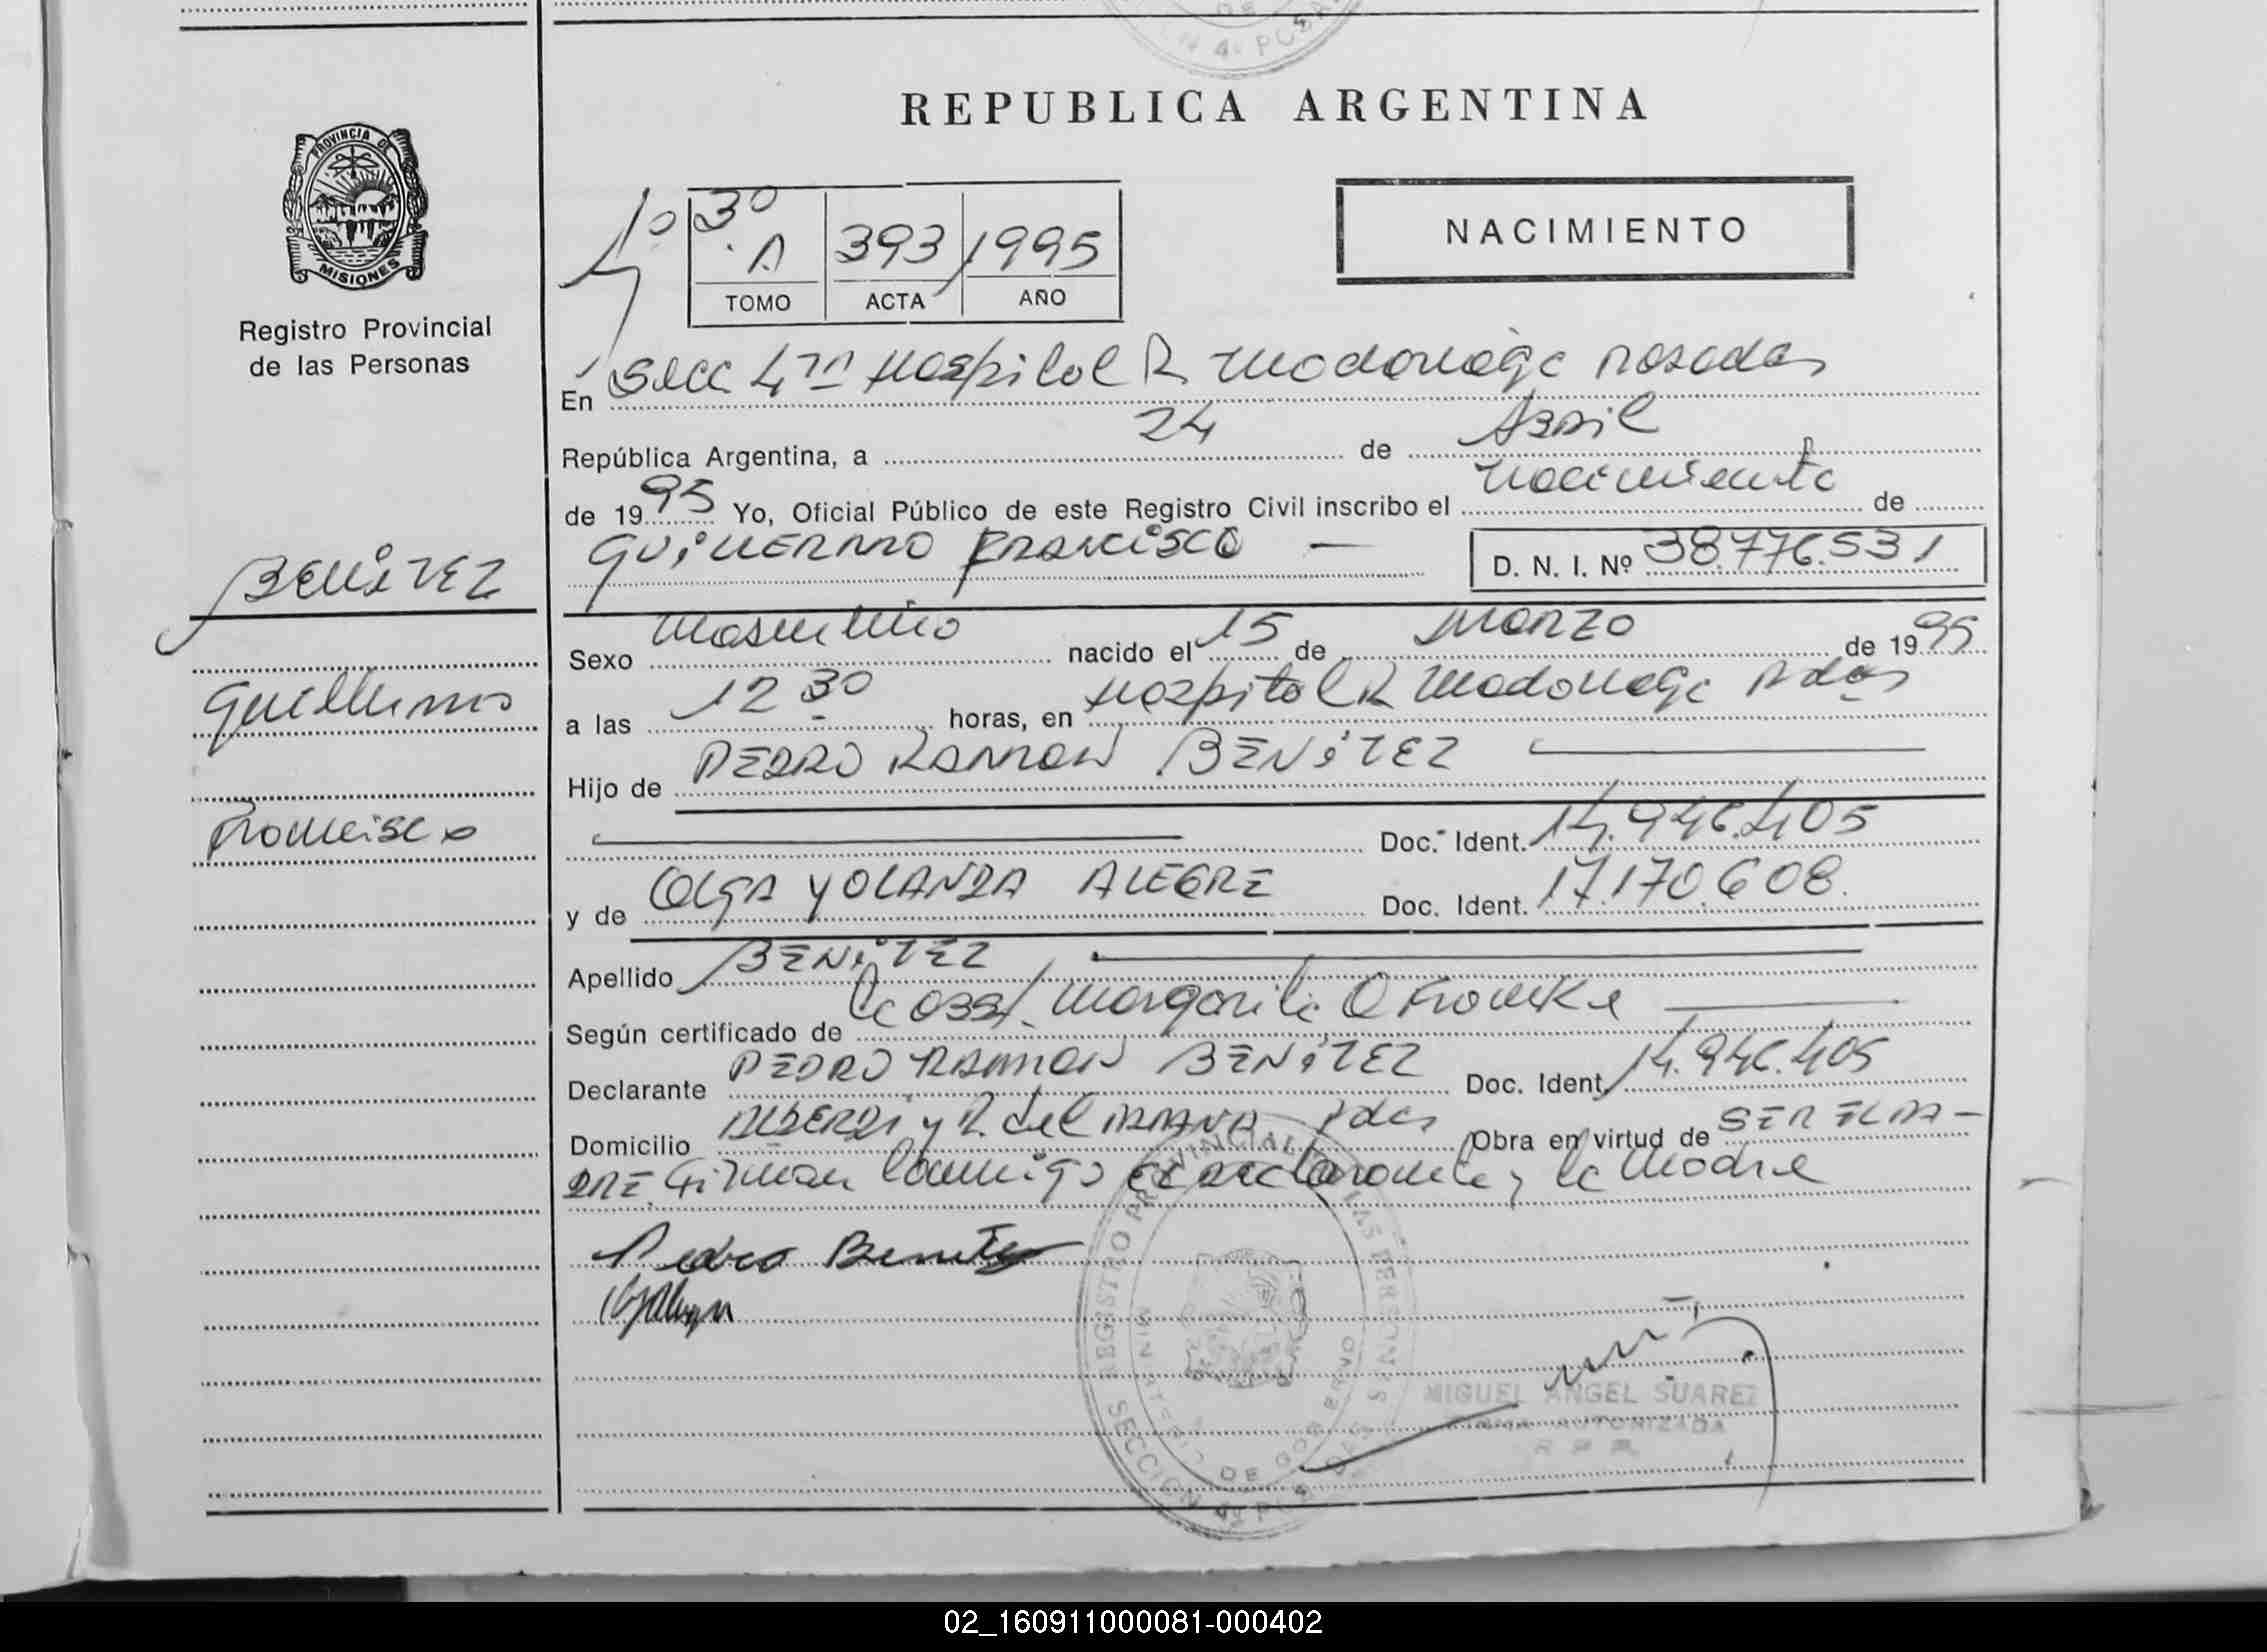 REPUBLICA ARGENTINA
PROVINCIA DE
MISIONES
Registro Provincial
de las Personas
3º
A 393 1995
TOMO ACTA AÑO
NACIMIENTO
En Secc 4ta Hospital R Madariaga Posadas
República Argentina, a 24 de Abril
de 1995 Yo, Oficial Público de este Registro Civil inscribo el nacimiento de
GUILLERMO FRANCISCO — D. N. I. Nº 38.776.531
BENITEZ
Guillermo
Francisco
Sexo Masculino nacido el 15 de Marzo de 1995
a las 12 30 horas, en Hospital R Madariaga Pdas
Hijo de PEDRO RAMON BENITEZ
Doc. Ident. 14.946.405
y de OLGA YOLANDA ALEGRE Doc. Ident. 17.170.608.
Apellido BENITEZ
Según certificado de la Obst. Margarita
Declarante PEDRO RAMON BENITEZ Doc. Ident. 14.946.405
Domicilio ALBERDI y R. del PARANA Pdas Obra en virtud de SER EL PA-
DRE. Firman Conmigo el declarante y la Madre
Pedro Benitez
REGISTRO PROVINCIAL DE LAS PERSONAS
MINISTERIO DE GOBIERNO
SECCION 4º POSADAS
MIGUEL ANGEL SUAREZ
FIRMA AUTORIZADA
02_160911000081-000402